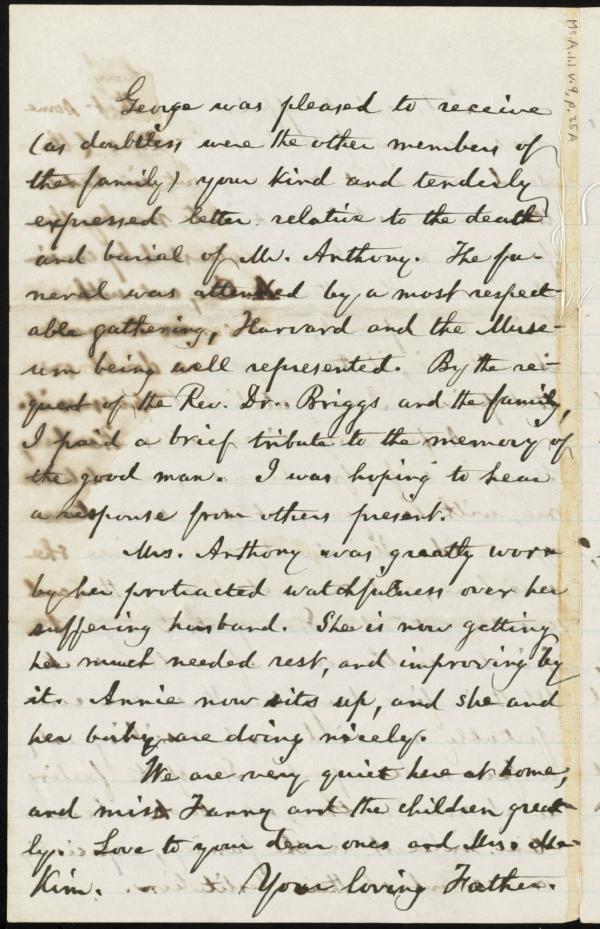 George was pleased to receive
(as doubtless were the other members of
the family) your kind and tenderly
expressed letter relative to the death
and burial of Mr. Anthony. The fu-
neral was attended by a most respect-
able gathering, Harvard and the Muse-
um being well represented. By the re-
quest of the Rev. Dr. Briggs and the family,
I paid a brief tribute to the memory of
the good man. I was hoping to hear
a response from others present.
Mrs. Anthony was greatly worn
by her protracted watchfulness over her
suffering husband. She is now getting
her much needed rest, and improving by
it. Annie now sits up, and she and
her baby are doing nicely.
We are very quiet here at home,
and miss Fanny and the children great-
ly. Love to your dear ones and Mrs. Mc-
Kim. Your loving Father.
Ms.A.1.1 v.9, p.35A